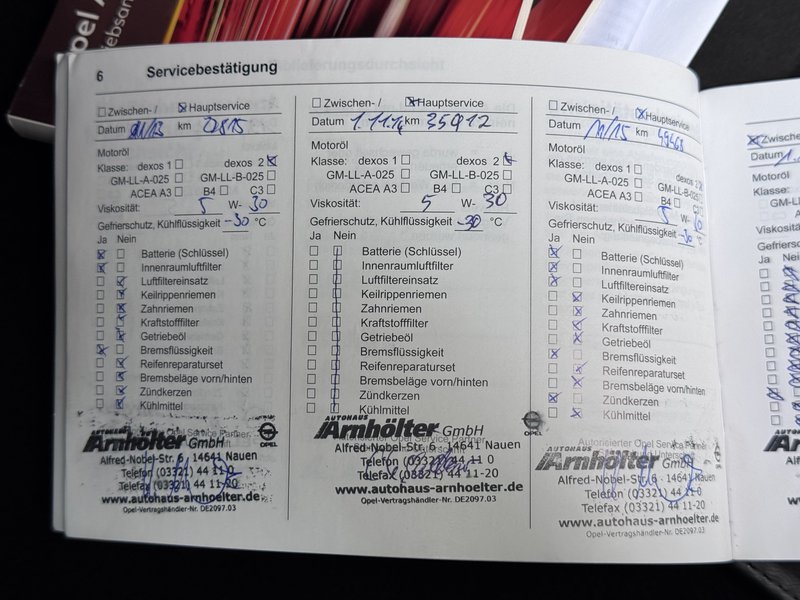 6 Servicebestätigung
Zwischen- / Hauptservice
Datum 11/13 km
Motoröl
Klasse: dexos 1 dexos 2
GM-LL-A-025 GM-LL-B-025
ACEA A3 B4 C3
Viskosität: 5 W- 30
Gefrierschutz, Kühlflüssigkeit -30 °C
Ja Nein
Batterie (Schlüssel)
Innenraumluftfilter
Luftfiltereinsatz
Keilrippenriemen
Zahnriemen
Kraftstofffilter
Getriebeöl
Bremsflüssigkeit
Reifenreparaturset
Bremsbeläge vorn/hinten
Zündkerzen
Kühlmittel
AUTOHAUS
Arnhölter GmbH
OPEL
Alfred-Nobel-Str. 6 · 14641 Nauen
Telefon (03321) 44 11 0
Telefax (03321) 44 11-20
www.autohaus-arnhoelter.de
Opel-Vertragshändler-Nr. DE2097.03
Zwischen- / Hauptservice
Datum 1.11.14 km 35912
Motoröl
Klasse: dexos 1 dexos 2
GM-LL-A-025 GM-LL-B-025
ACEA A3 B4 C3
Viskosität: 5 W- 30
Gefrierschutz, Kühlflüssigkeit -30 °C
Ja Nein
Batterie (Schlüssel)
Innenraumluftfilter
Luftfiltereinsatz
Keilrippenriemen
Zahnriemen
Kraftstofffilter
Getriebeöl
Bremsflüssigkeit
Reifenreparaturset
Bremsbeläge vorn/hinten
Zündkerzen
Kühlmittel
AUTOHAUS
Arnhölter GmbH
OPEL
Autorisierter Opel Service Partner
Alfred-Nobel-Str. 6 · 14641 Nauen
Telefon (03321) 44 11 0
Telefax (03321) 44 11-20
www.autohaus-arnhoelter.de
Opel-Vertragshändler-Nr. DE2097.03
Zwischen- / Hauptservice
Datum 11/15 km 49468
Motoröl
Klasse: dexos 1 dexos 2
GM-LL-A-025 GM-LL-B-025
ACEA A3 B4 C3
Viskosität: 5 W- 30
Gefrierschutz, Kühlflüssigkeit -30 °C
Ja Nein
Batterie (Schlüssel)
Innenraumluftfilter
Luftfiltereinsatz
Keilrippenriemen
Zahnriemen
Kraftstofffilter
Getriebeöl
Bremsflüssigkeit
Reifenreparaturset
Bremsbeläge vorn/hinten
Zündkerzen
Kühlmittel
Autorisierter Opel Service Partner
AUTOHAUS
Arnhölter GmbH
Alfred-Nobel-Str. 6 · 14641 Nauen
Telefon (03321) 44 11 0
Telefax (03321) 44 11-20
www.autohaus-arnhoelter.de
Opel-Vertragshändler-Nr. DE2097.03
Datum
Motoröl
Klasse:
GM-LL
Viskosität
Ja Nein